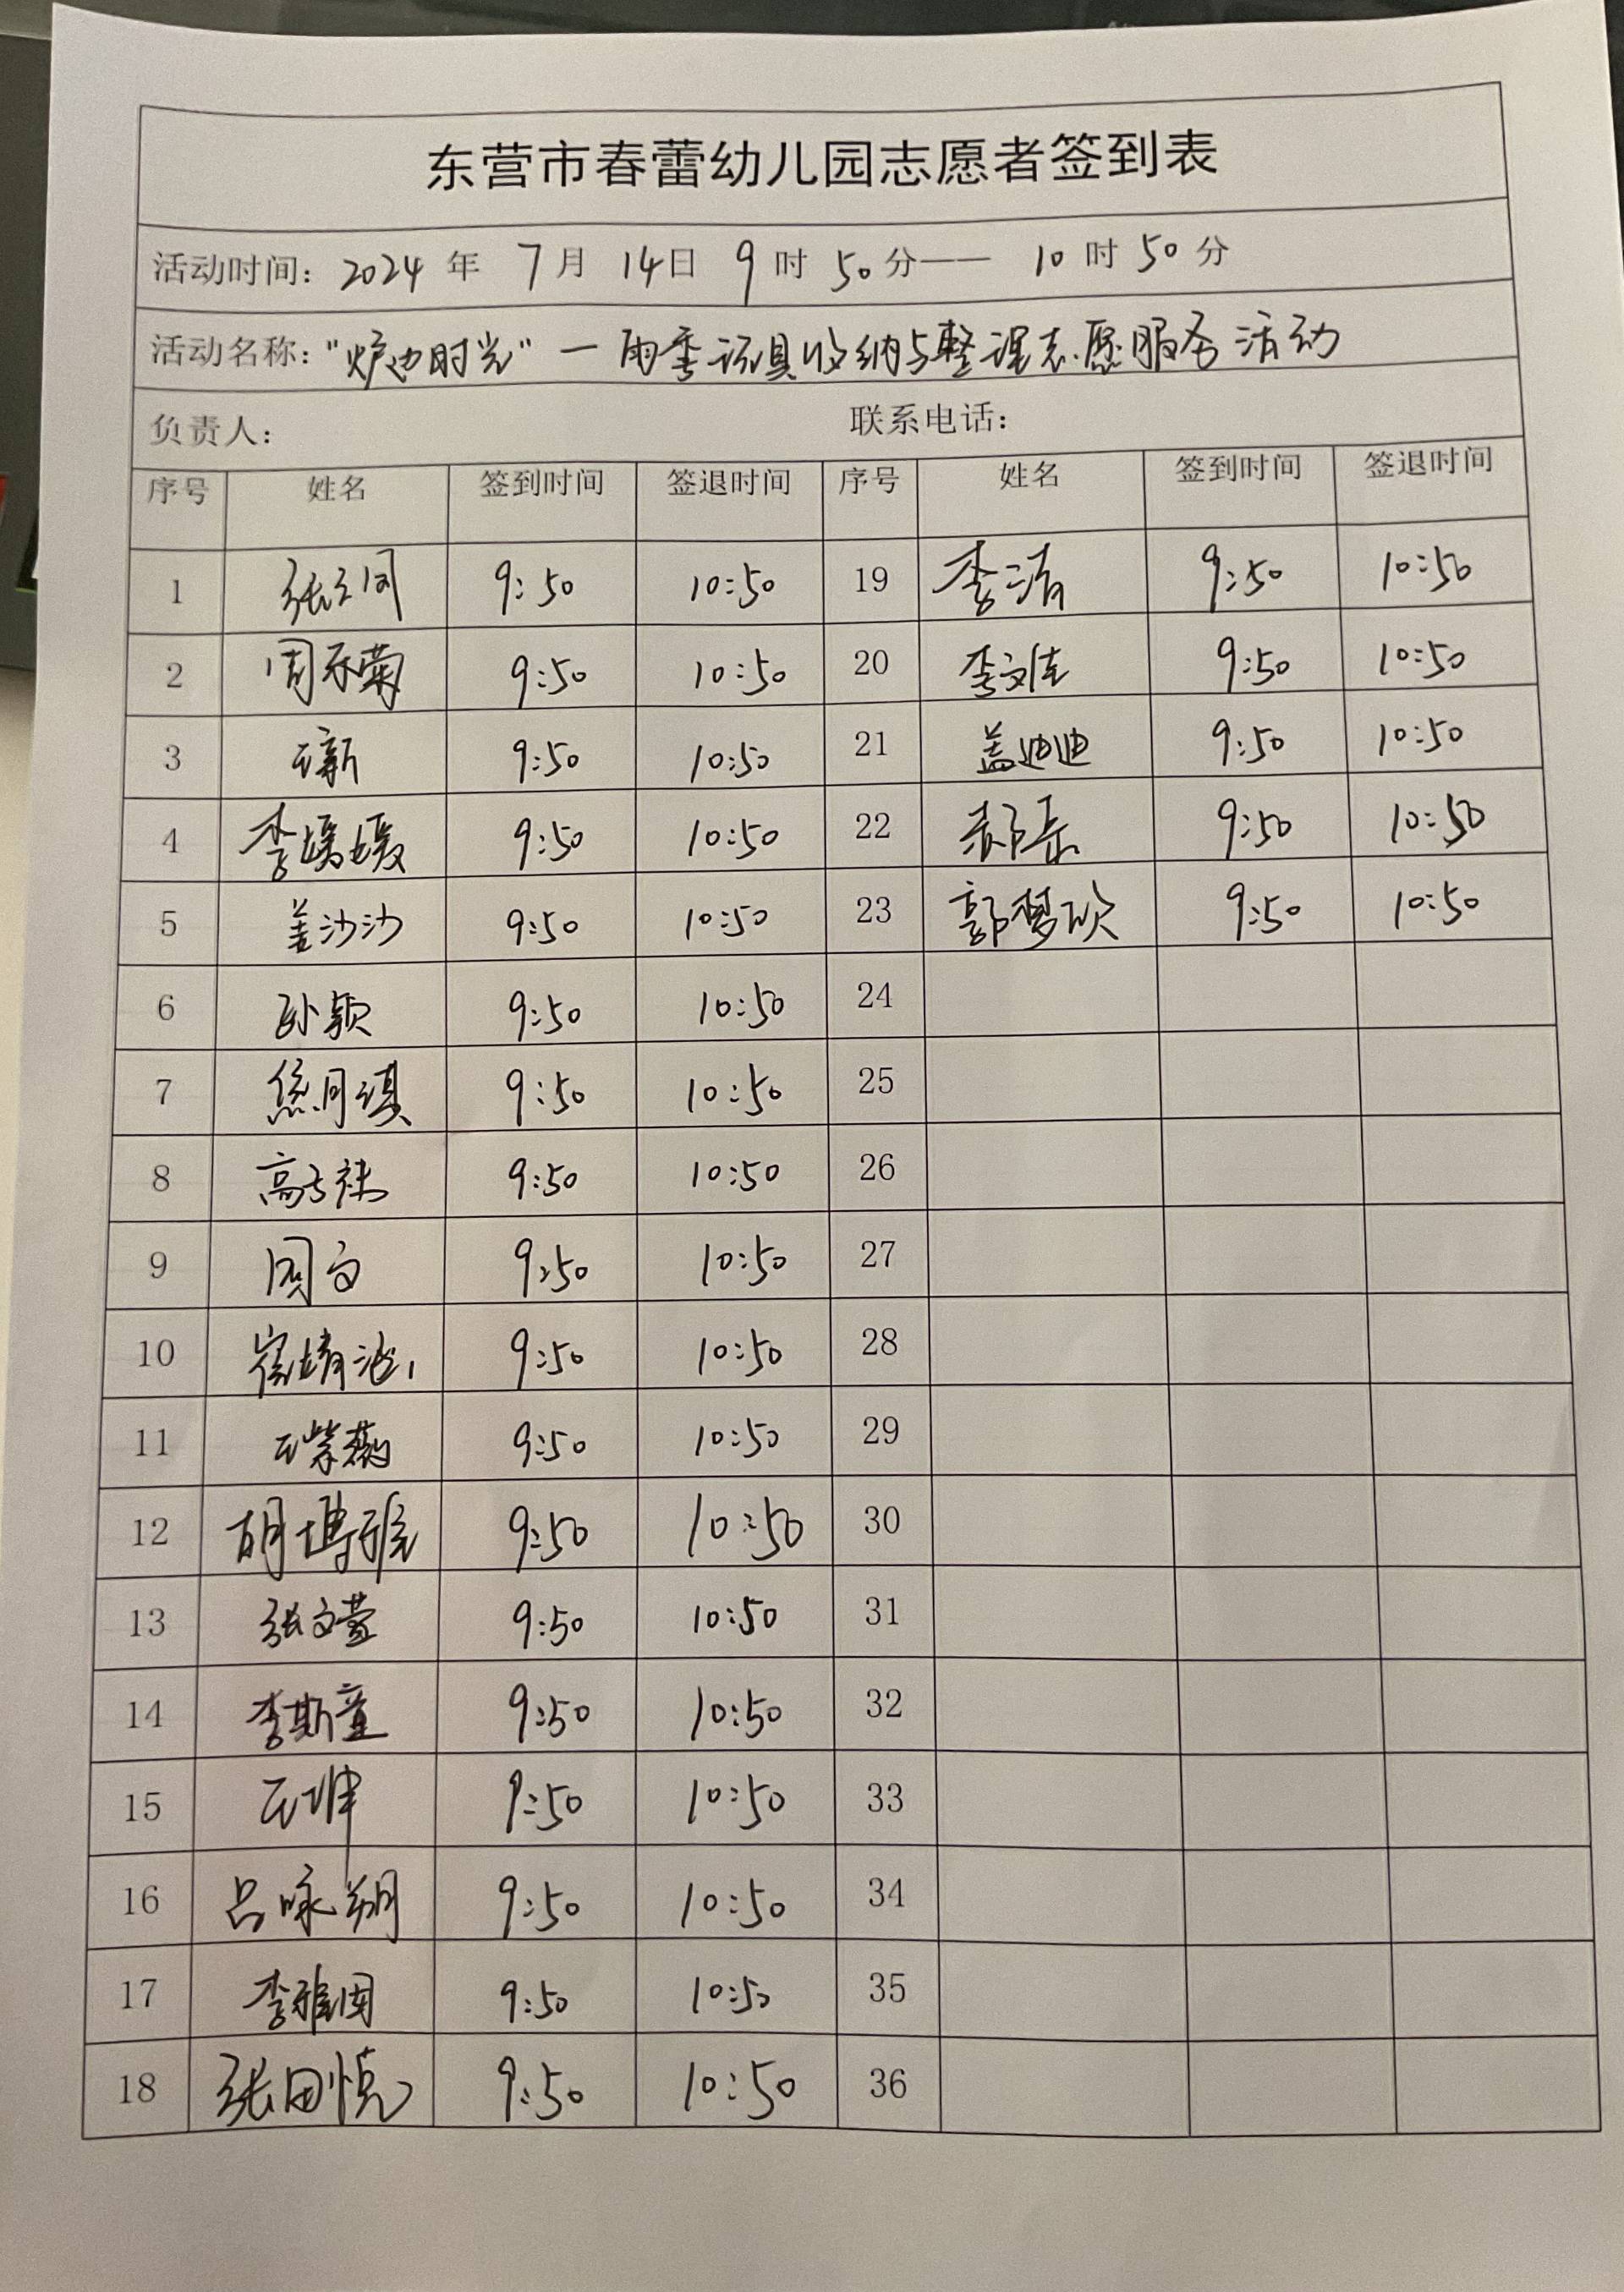 东营市春蕾幼儿园志愿者签到表
活动时间：2024 年 7 月 14日 9 时 50分—— 10 时 50 分
活动名称："炉边时光"一雨季玩具收纳与整理志愿服务活动
负责人： 联系电话：
序号 姓名 签到时间 签退时间 序号 姓名 签到时间 签退时间
1 9:50 10:50 19 李洁 9:50 10:50
2 9:50 10:50 20 李文佳 9:50 10:50
3 王新 9:50 10:50 21 盖迪迪 9:50 10:50
4 李媛媛 9:50 10:50 22 郝岳 9:50 10:50
5 姜沙沙 9:50 10:50 23 郭梦欣 9:50 10:50
6 孙颖 9:50 10:50 24
7 9:50 10:50 25
8 9:50 10:50 26
9 周文 9:50 10:50 27
10 9:50 10:50 28
11 王紫薇 9:50 10:50 29
12 胡博雅 9:50 10:50 30
13 张文萱 9:50 10:50 31
14 李斯童 9:50 10:50 32
15 王坤 9:50 10:50 33
16 吕咏朔 9:50 10:50 34
17 9:50 10:50 35
18 张田慎 9:50 10:50 36